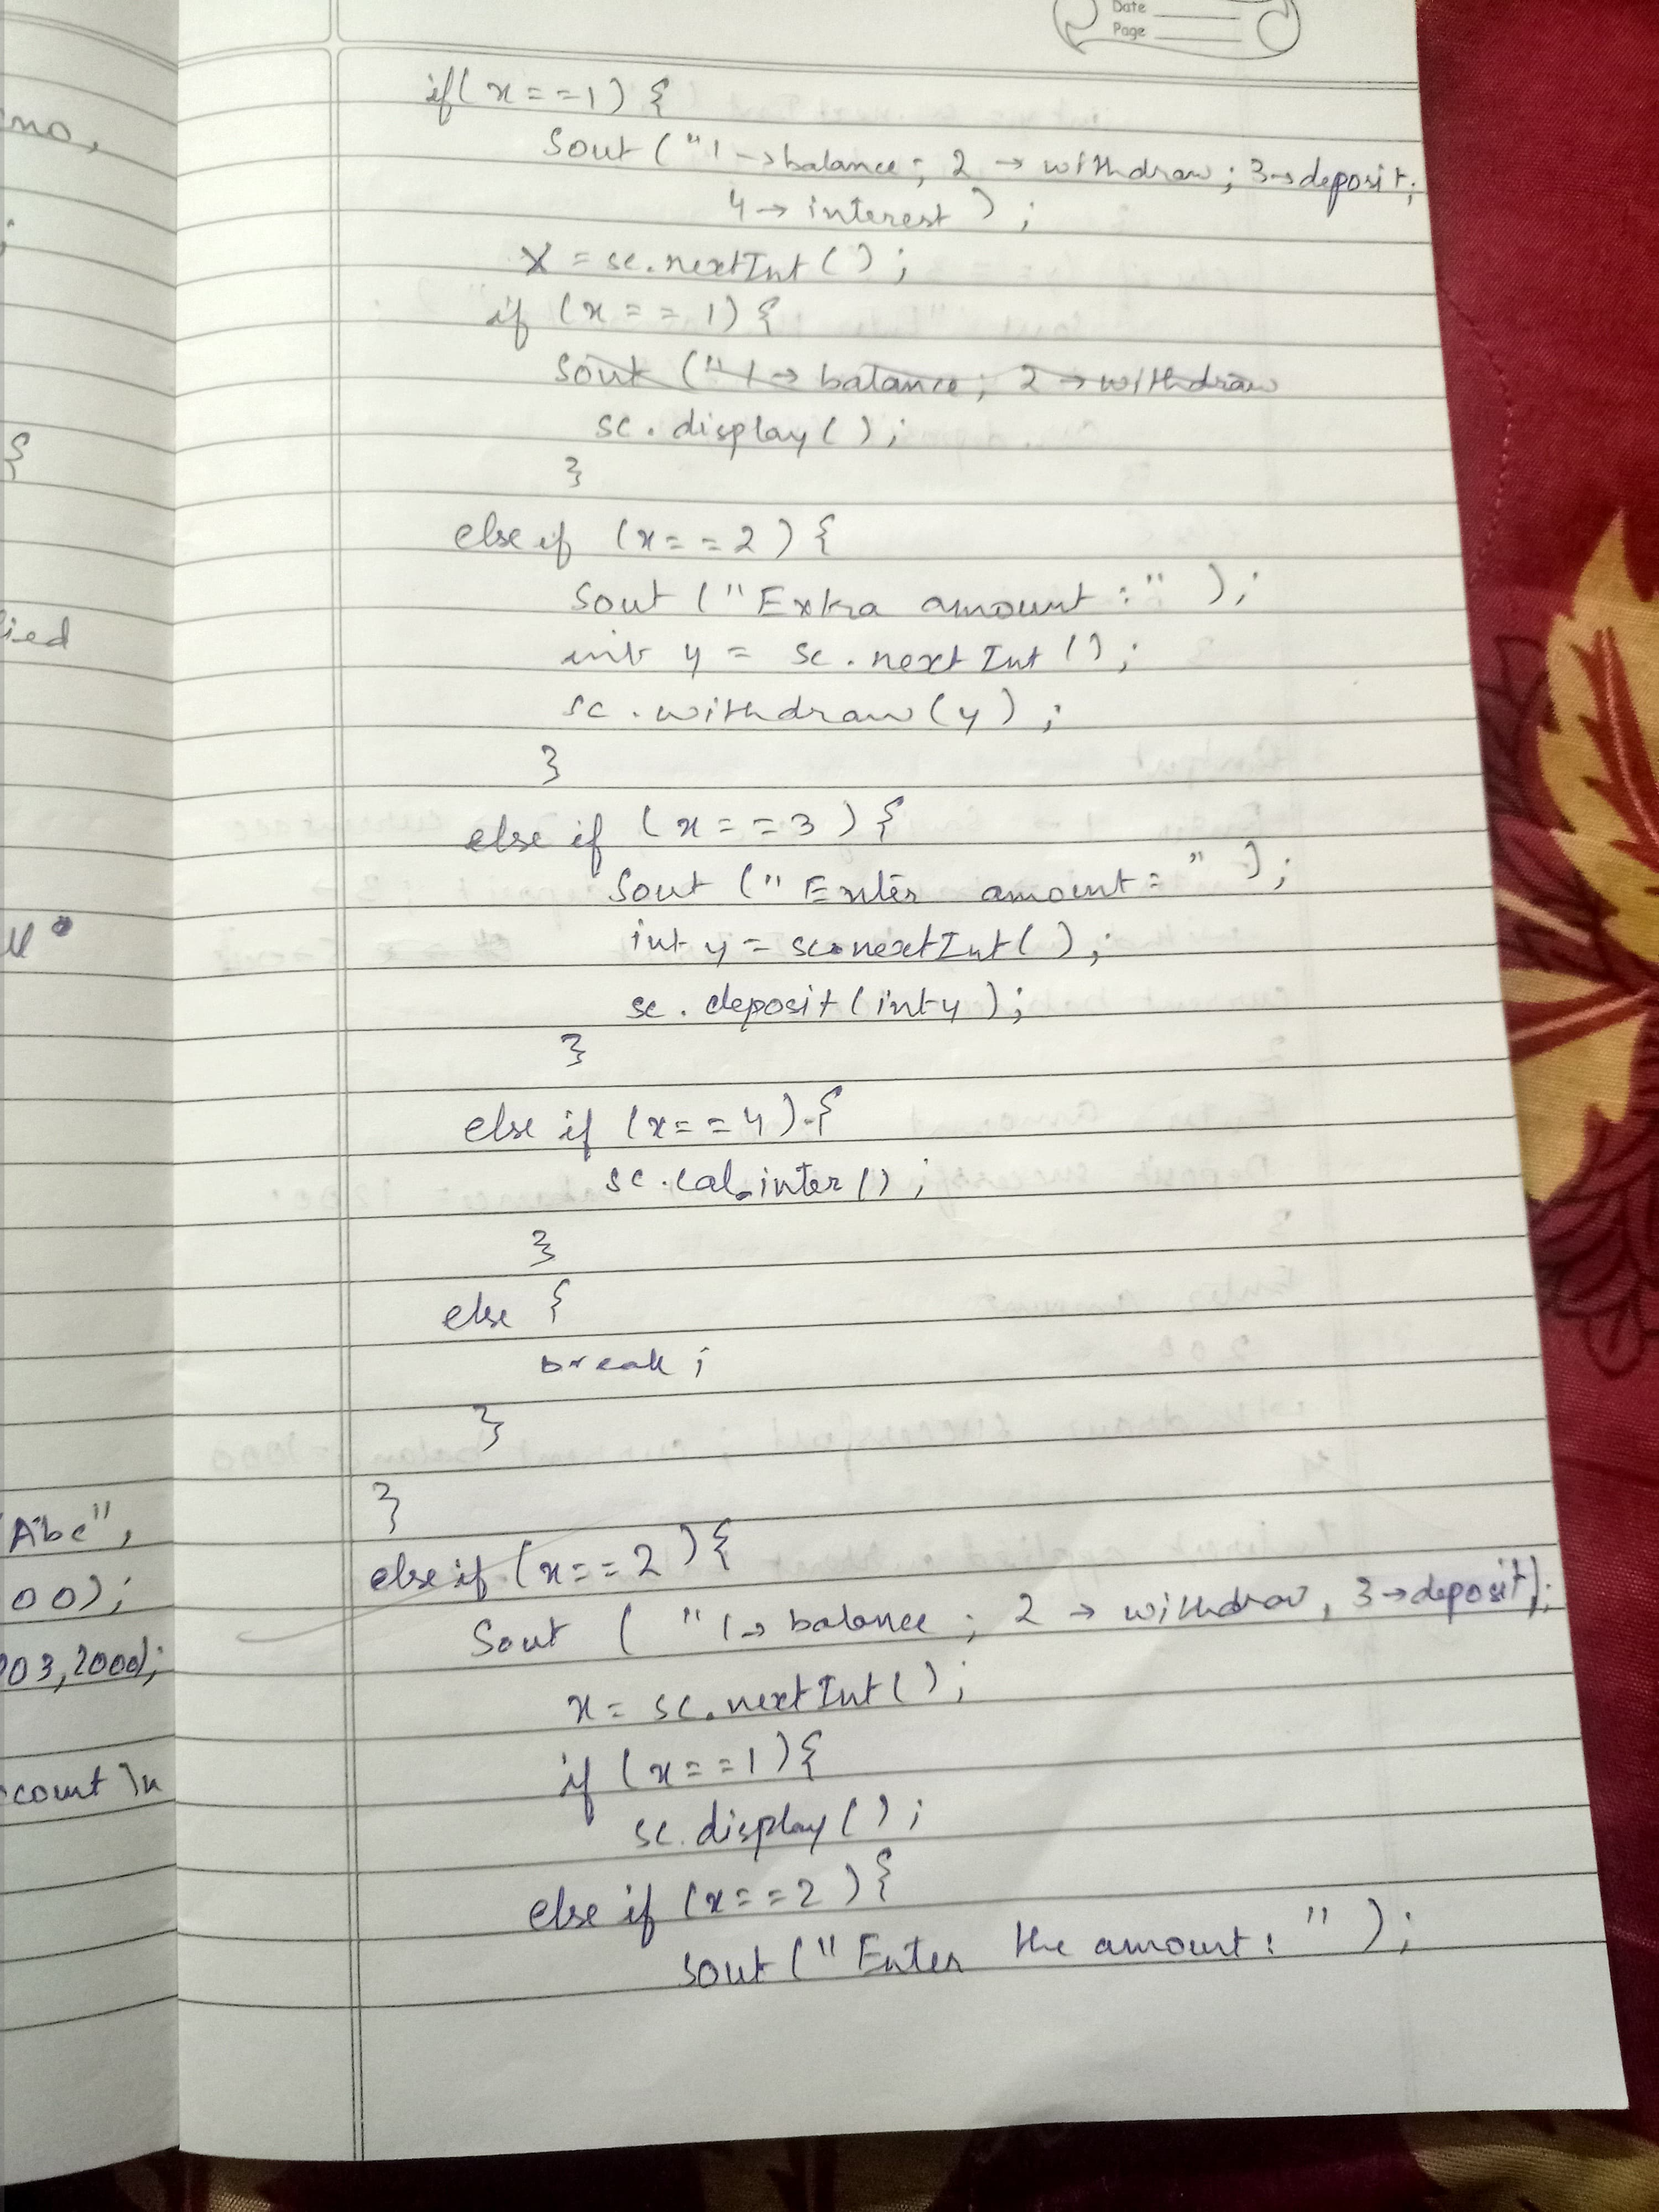 Date
Page
if(x==1){
Sout("1→balance; 2→withdraw; 3→deposit;
4→interest);
X=sc.nextInt();
if (x==1){
Sout ("1→ balance; 2→withdraw
sc.display();
}
else if (x==2){
Sout ("Extra amount:");
int y = sc.nextInt();
sc.withdraw(y);
}
else if (x==3){
Sout ("Enter amount:");
int y=sc.nextInt();
sc.deposit(int y);
}
else if (x==4){
sc.cal.inter();
}
else {
break;
}
}
else if (x==2){
Sout ("1→ balance; 2 → withdraw, 3→deposit);
x=sc.nextInt();
if (x==1){
sc.display();
else if (x==2){
sout ("Enter the amount: ");
mo,
;
{
ied
"Abc",
00);
03,2000);
ccount \n